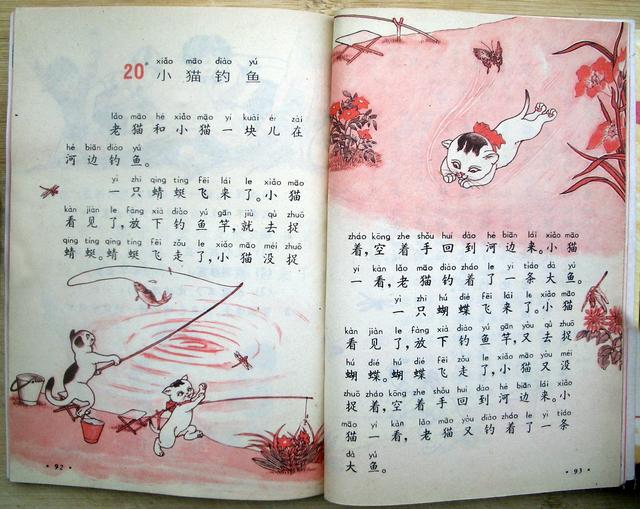 xiǎo māo diào yú
20* 小猫钓鱼
lǎo māo hé xiǎo māo yi kuài ér zài
老猫和小猫一块儿在
hé biān diào yú
河边钓鱼。
yì zhī qīng tíng fēi lái le xiǎo māo
一只蜻蜓飞来了。小猫
kàn jiàn le fàng xià diào yú gān jiù qù zhuō
看见了,放下钓鱼竿,就去捉
qīng tíng qīng tíng fēi zǒu le xiǎo māo méi zhuō
蜻蜓。蜻蜓飞走了,小猫没捉
·92·
zháo kōng zhe shǒu huí dào hé biān lái xiǎo māo
着,空着手回到河边来。小猫
yí kàn lǎo māo diào zháo le yì tiáo dà yú
一看,老猫钓着了一条大鱼。
yì zhī hú dié fēi lái le xiǎo māo
一只蝴蝶飞来了。小猫
kàn jiàn le fàng xià diào yú gān yòu qù zhuō
看见了,放下钓鱼竿,又去捉
hú dié hú dié fēi zǒu le xiǎo māo yòu méi
蝴蝶。蝴蝶飞走了,小猫又没
zhuō zháo kōng zhe shǒu huí dào hé biān lái xiǎo
捉着,空着手回到河边来。小
māo yí kàn lǎo māo yòu diào zháo le yì tiáo
猫一看,老猫又钓着了一条
dà yú
大鱼。
·93·